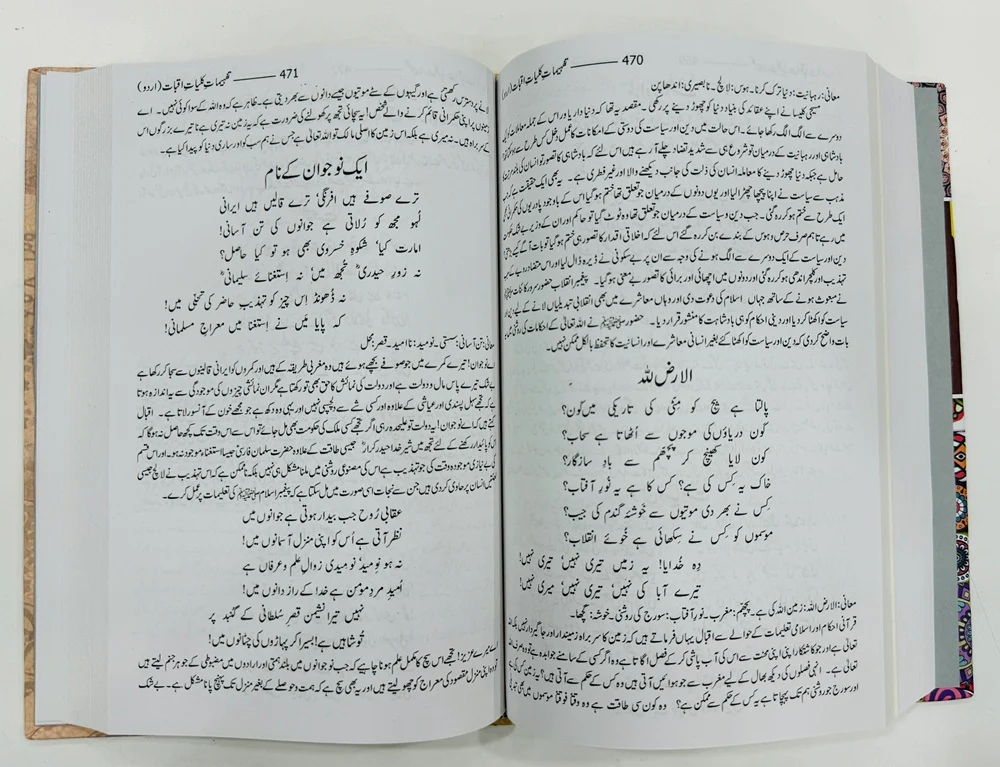 تفہیمات کلیات اقبال (اردو) ——— 470
معانی: رہبانیت: دنیا ترک کرنا۔ ہوس: لالچ۔ نا بصیری: اندھا پن
مسیحی کلیسا نے اپنے عقائد کی بنیاد دنیا کو چھوڑ دینے پر رکھی۔ مقصد یہ تھا کہ دنیا داری اور اس کے جملہ معاملات کو ایک
دوسرے سے الگ الگ رکھا جائے۔ اس حالت میں دین اور سیاست کی دوستی کے امکانات کا عمل دخل کس طرح سے ہو سکتا
بادشاہی اور رہبانیت کے درمیان تو شروع ہی سے شدید تضاد چلے آ رہے ہیں اس لئے کہ بادشاہی کا تصور تو انسان کی
حامل ہے جبکہ دنیا چھوڑ دینے کا معاملہ انسان کی ذلت کی جانب دیکھنے والا اور غیر فطری ہے۔ یہ بھی ایک حقیقت ہے کہ
مذہب سے سیاست نے اپنا پیچھا چھڑا لیا اور یوں دونوں کے درمیان جو تعلق تھا ختم ہو گیا اس کے باوجود پادریوں کی حکمرانی
ایک طرح سے ختم ہو کر رہ گئی۔ جب دین و سیاست کے درمیان جو تعلق تھا وہ ٹوٹ گیا تو حاکم اور ان کے وزیر بے شک
میں رہے تاہم صرف حرص و ہوس کے بندے بن کر رہ گئے اس لئے کہ اخلاقی اقدار کا تصور ہی ختم ہو گیا تو بات آگے کیسے
دین اور سیاست کے ایک دوسرے سے الگ ہونے کی وجہ سے ان پر بے سکونی نے ڈیرہ ڈال لیا اور اس متضاد رویے کے
تہذیب اور کلچر اندھی ہو کر رہ گئی اور دونوں میں اچھائی اور برائی کا تصور بے معنی ہو گیا۔ پیغمبر انقلاب حضور سرور کائنات ﷺ
نے مبعوث ہونے کے ساتھ جہاں اسلام کی دعوت دی اور وہاں معاشرے میں بھی انقلابی تبدیلیاں لانے کے لیے دین
سیاست کو اکٹھا کر دیا اور دینی احکام کو ہی بادشاہت کا منشور قرار دیا۔ حضور ﷺ نے اللہ تعالیٰ کے احکامات کی روشنی میں
بات واضح کر دی کہ دین اور سیاست کو اکٹھا کئے بغیر انسانی معاشرے اور انسانیت کا تحفظ بالکل ممکن نہیں۔
الارض للہ
پالتا ہے بیج کو مٹی کی تاریکی میں کون؟
کون دریاؤں کی موجوں سے اٹھاتا ہے سحاب؟
کون لایا کھینچ کر پچھم سے باد سازگار؟
خاک یہ کس کی ہے؟ کس کا ہے یہ نور آفتاب؟
کس نے بھر دی موتیوں سے خوشۂ گندم کی جیب؟
موسموں کو کس نے سکھائی ہے خوئے انقلاب؟
دہ خدایا! یہ زمیں تیری نہیں، تیری نہیں!
تیرے آبا کی نہیں، تیری نہیں، میری نہیں!
معانی: الارض للہ: زمین اللہ کی ہے۔ پچھم: مغرب۔ نور آفتاب: سورج کی روشنی۔ خوشہ: گچھا۔
قرآنی احکام اور اسلامی تعلیمات کے حوالے سے اقبال یہاں فرماتے ہیں کہ زمین کا سربراہ زمیندار اور جاگیردار نہیں بلکہ اللہ
تعالیٰ ہے۔ اور جو کاشتکار اپنی محنت سے اس کی آب پاشی کر کے فصل اگاتا ہے وہ اگر کسی کے سامنے جوابدہ ہے تو وہ صرف اللہ
تعالیٰ ہی ہے۔ انہی فصلوں کی دیکھ بھال کے لیے مغرب سے جو ہوائیں آتی ہیں وہ کس کے حکم سے آتی ہیں؟ یہ زمین کس کی ہے
اور سورج جو روشنی ہم تک پہنچاتا ہے یہ کس کے حکم سے ممکن ہے؟ وہ کون سی طاقت ہے وہ وقتاً فوقتاً موسموں میں بھی تبدیلی
تفہیمات کلیات اقبال (اردو) ——— 471
لانے پر دسترس رکھتی ہے اور گیہوں کے سٹے موتیوں جیسے دانوں سے بھر دیتی ہے۔ ظاہر ہے کہ وہ اللہ کے سوا کوئی نہیں۔ اے
زمینوں پر اپنی حکمرانی قائم کرنے والے شخص! یہ سچائی تجھ پر کھولنے کی ضرورت ہے کہ یہ زمین نہ تیری ہے نا تیرے بزرگوں اس
کے سربراہ ہیں۔ نہ میری ہے بلکہ اس زمین کا اصلی مالک تو اللہ تعالیٰ ہے جس نے ہم سب کو اور ساری دنیا کو پیدا کیا ہے۔
ایک نوجوان کے نام
ترے صوفے ہیں افرنگی، ترے قالیں ہیں ایرانی
لہو مجھ کو رلاتی ہے جوانوں کی تن آسانی!
امارت کیا، شکوہ خسروی بھی ہو تو کیا حاصل؟
نہ زور حیدریؓ تجھ میں، نہ استغنائے سلمانیؓ
نہ ڈھونڈ اس چیز کو تہذیب حاضر کی تجلی میں!
کہ پایا میں نے استغنا میں معراج مسلمانی!
معانی: تن آسانی: سستی۔ نومید: ناامید۔ قصر: محل
اے نوجوان! تیرے کمرے میں جو صوفے بچھے ہوئے ہیں وہ مغربی طریقہ کے ہیں اور کمروں کو ایرانی قالینوں سے سجا کر رکھا ہے
بے شک تیرے پاس مال و دولت ہے اور دولت کی نمائش کا حق بھی تو رکھتا ہے مگر ان نمائشی چیزوں کی موجودگی سے یہ اندازہ ہوتا
ہے کہ تجھے سہل پسندی اور عیاشی کے علاوہ اور کسی شے سے دلچسپی نہیں اور یہی وہ دکھ ہے جو مجھے خون کے آنسو رلاتا ہے۔ اقبال
کہتے ہیں کہ اے نوجوان! یہ دولت تو علیحدہ رہی اگر تجھے کسی ملک کی حکومت بھی مل جائے تو اس سے اس وقت تک کچھ حاصل نہ ہو گا کہ
اس کو پائیدار رکھنے کے لئے تجھ میں شیر خدا حیدر کرارؓ جیسی طاقت کے علاوہ حضرت سلمان فارسیؓ جیسا استغنا موجود نہ ہو۔ اور اس قسم
کی بے نیازی موجودہ وقت کی جو تہذیب ہے اس کی مصنوعی روشنی میں ملنا مشکل ہی نہیں بلکہ ناممکن ہے کہ اس تہذیب نے لالچ جیسی
لعنتیں انسان پر حاوی کر دی ہیں جن سے نجات اسی صورت میں مل سکتا ہے کہ پیغمبر اسلام ﷺ کی تعلیمات پر عمل کرے۔
عقابی روح جب بیدار ہوتی ہے جوانوں میں
نظر آتی ہے اس کو اپنی منزل آسمانوں میں!
نہ ہو نومید، نومیدی زوال علم و عرفاں ہے
امید مرد مومن ہے خدا کے رازدانوں میں!
نہیں تیرا نشیمن قصر سلطانی کے گنبد پر
تو شاہیں ہے! بسیرا کر پہاڑوں کی چٹانوں میں!
اے میرے عزیز! تجھے اس سچ کا مکمل علم ہونا چاہئے کہ جب نوجوانوں میں بلند ہمتی اور ارادوں میں مضبوطی کے جوہر جنم لیتے ہیں
تو وہ اپنی منزل مقصود کی معراج کو چھو لیتے ہیں اور یہ بھی سچ ہے کہ ہمت و حوصلے کے بغیر منزل تک پہنچ پانا مشکل ہے۔ بے شک